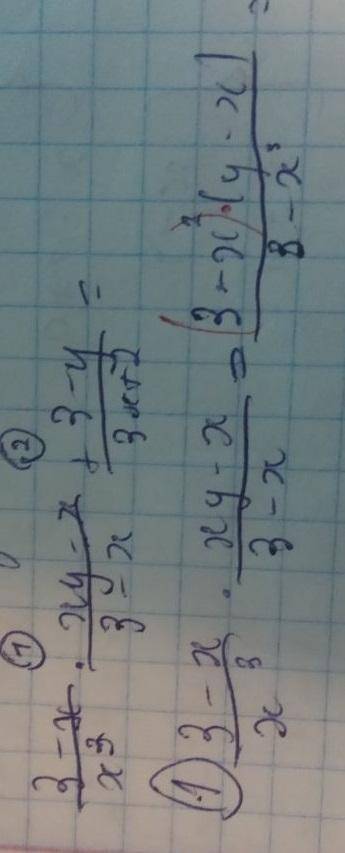 ① ②
(3 - x)/x³ · (xy - x)/(3 - x) + (3 - y)/(3x + 2) =
① (3 - x)/x³ · (xy - x)/(3 - x) = (3 - x²)·(y - x)/(3 - x³) =